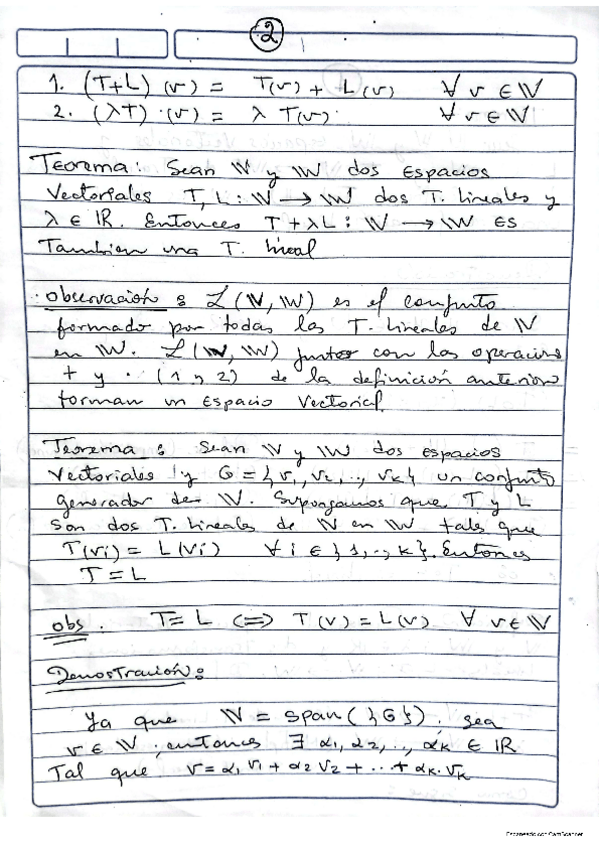 2
1. (T+L)(v) = T(v) + L(v) ∀ v ∈ V
2. (λT)·(v) = λ T(v) ∀ v ∈ V
Teorema: Sean V y W dos Espacios
Vectoriales T, L : V → W dos T. lineales y
λ ∈ IR. Entonces T + λL : V → W es
Tambien una T. lineal
Observación : L(V, W) es el conjunto
formado por todas las T. lineales de V
en W. L(V, W) junto con las operaciones
+ y · (1 y 2) de la definición anterior
forman un Espacio Vectorial.
Teorema : Sean V y W dos espacios
Vectoriales y G = {v1, v2, .., vk} un conjunto
generador de V. Supongamos que T y L
son dos T. lineales de V en W tales que
T(vi) = L(vi) ∀ i ∈ {1, .., k}. Entonces
T = L
obs. T = L <=> T(v) = L(v) ∀ v ∈ V
Demostración :
Ya que V = span({G}). sea
v ∈ V, entonces ∃ α1, α2, .., αk ∈ IR
Tal que v = α1 v1 + α2 v2 + ... + αk. vk
Escaneado con CamScanner